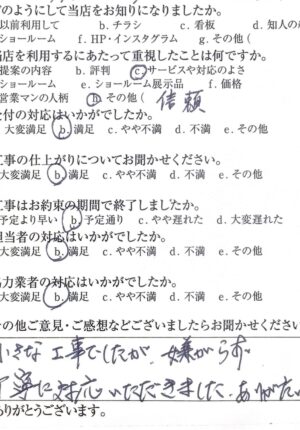 のようにして当店をお知りになりましたか。
以前利用して b. チラシ c. 看板 d. 知人の
ショールーム f. HP・インスタグラム g. その他(
当店を利用するにあたって重視したことは何ですか。
提案の内容 b. 評判 c. サービスや対応のよさ
ショールーム e. ショールーム展示品 f. 価格
営業マンの人柄 h その他( 信頼
付の対応はいかがでしたか。
大変満足 b. 満足 c. やや不満 d. 不満 e. その他
工事の仕上がりについてお聞かせください。
大変満足 b. 満足 c. やや不満 d. 不満 e. その他
工事はお約束の期間で終了しましたか。
予定より早い b. 予定通り c. やや遅れた d. 大変遅れた
担当者の対応はいかがでしたか。
大変満足 b. 満足 c. やや不満 d. 不満 e. その他
協力業者の対応はいかがでしたか。
大変満足 b. 満足 c. やや不満 d. 不満 e. その他
の他ご意見・ご感想などございましたらお聞かせください
小さな工事でしたが、嫌がらず
丁寧に対応いただきました、ありがたい
ありがとうございます。